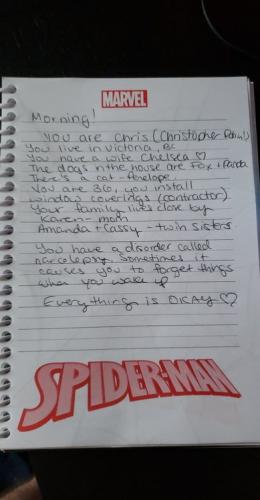 MARVEL
Morning!
You are Chris (Christopher
You live in Victoria, BC
You have a wife Chelsea ♡
The dogs in the house are Fox + Panda
There's a cat - Penelope
You are 36, you install
window coverings (contractor)
Your family lives close by
Karen - mom
Amanda + Cassy - twin sisters
You have a disorder called
narcolepsy. Sometimes it
causes you to forget things
when you wake up
Everything is OKAY ♡
SPIDER-MAN